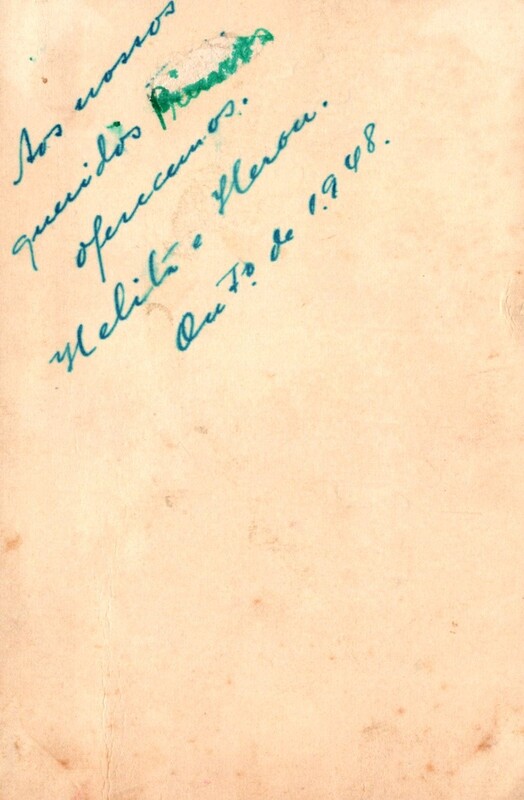 Aos nossos
queridos
oferecemos.
Helitã e Heron.
Ou Tº de 1.948.